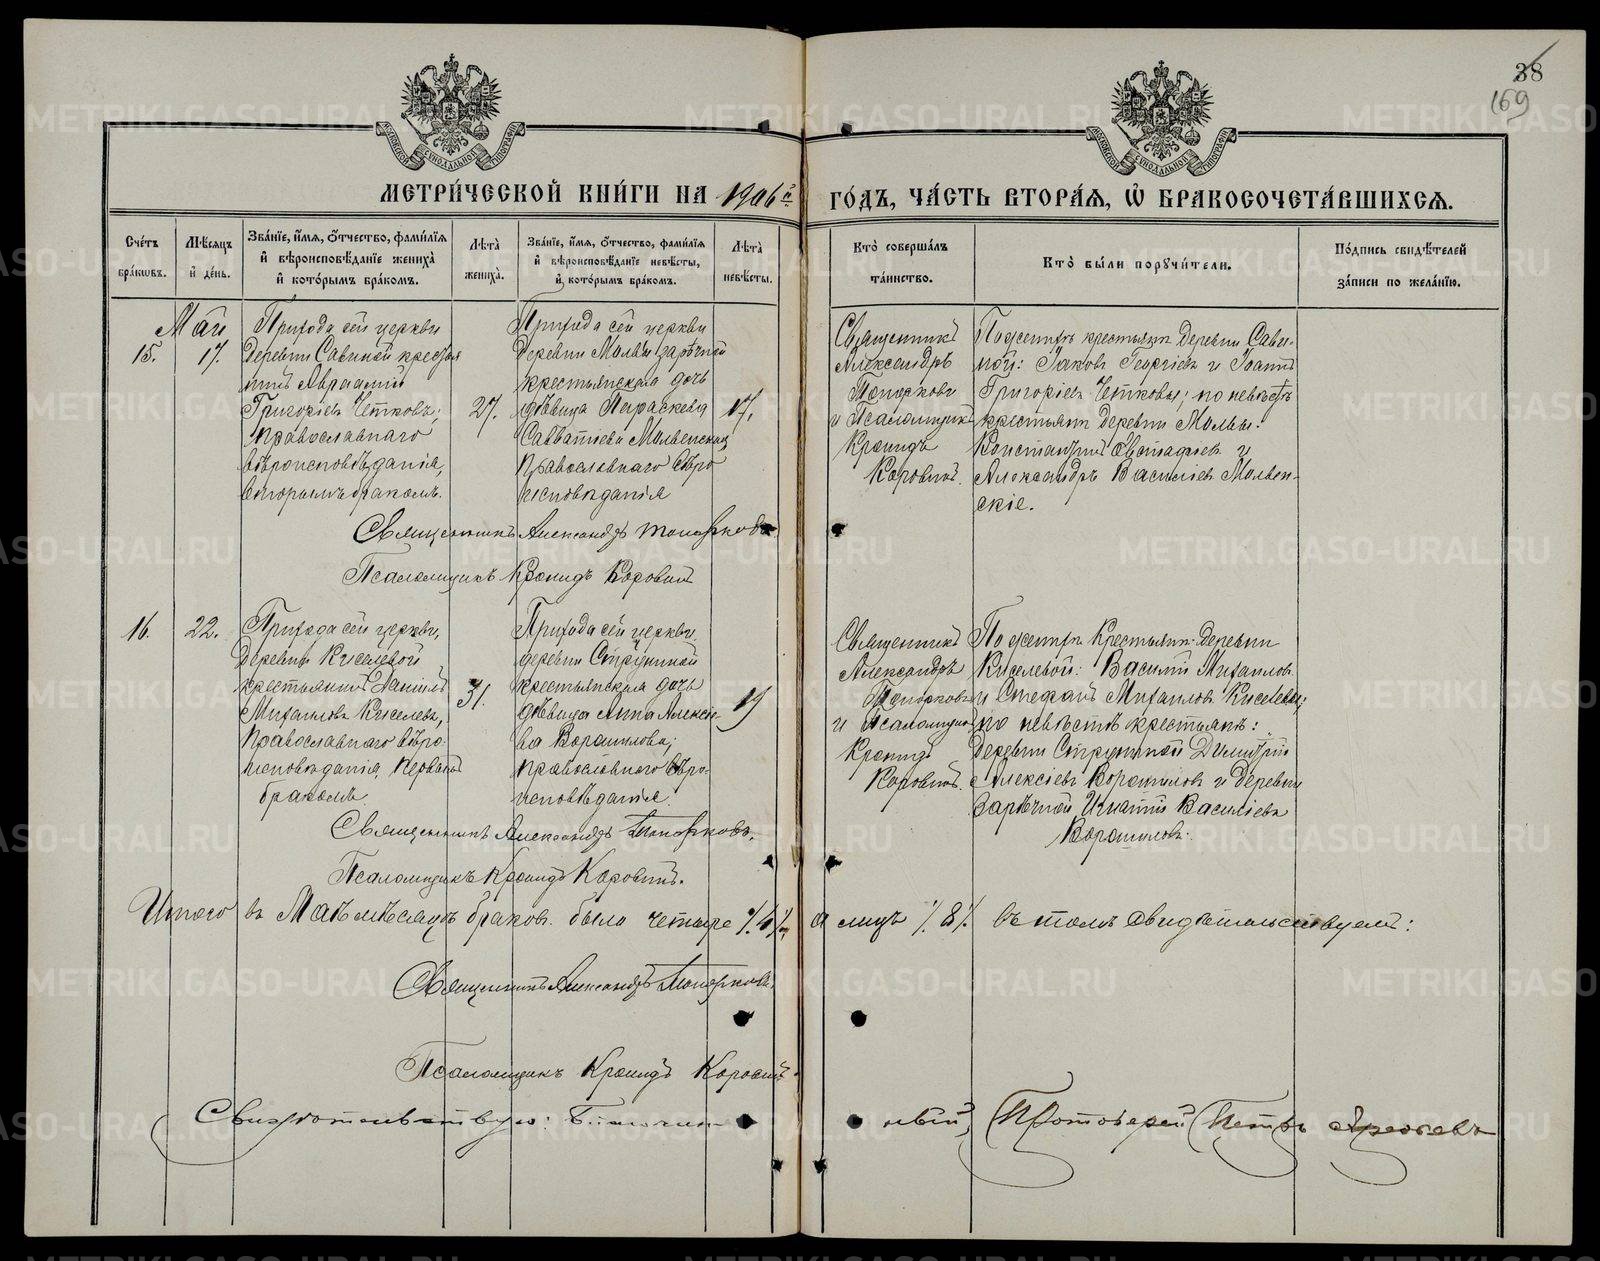 38
169
МОСКОВСКОЙ СѴНОДАЛЬНОЙ ТИПОГРАФІИ
МОСКОВСКОЙ СѴНОДАЛЬНОЙ ТИПОГРАФІИ
МЕТРИ́ЧЕСКОЙ КНИ́ГИ НА 1906й ГО́ДЪ, ЧА́СТЬ ВТОРА́Я, Ѽ БРАКОСОЧЕТА́ВШИХСЯ.
Сче́тъ
бра́кѡвъ.
Мѣ́сяцъ
и҆ де́нь.
Зва́нїе, и҆́мя, ѻ҆́тчество, фами́лїя
и҆ вѣроисповѣ́данїе жениха̀
и҆ кото́рымъ бра́комъ.
Лѣ́та̀
жениха̀.
Зва́нїе, и҆́мя, ѻ҆́тчество, фами́лїя
и҆ вѣроисповѣ́данїе невѣ́сты,
и҆ кото́рымъ бра́комъ.
Лѣ́та̀
невѣ́сты.
Кто̀ соверша́лъ
та́инство.
Кто̀ бы́ли порꙋчи́тели.
По́дпись свидѣ́телей
за́писи по жела́нїю.
Май
15.
17.
Прихода сей церкви
деревни Савиной крестья
нинъ Авраамій
Григоріевъ Четковъ;
православнаго
вѣроисповѣданія,
вторымъ бракомъ.
27.
Прихода сей церкви
деревни Мольвы зарѣчной
крестьянская дочь
дѣвица Параскева
Савватіева Мольвенская
православнаго вѣро
исповѣданія
17.
Священникъ
Александръ
Топорковъ
и Псаломщикъ
Кронидъ
Коровинъ.
По женихѣ крестьяне деревни Сави-
ной: Іаковъ Георгіевъ и Іоаннъ
Григоріевъ Четковы; по невѣстѣ
крестьяне деревни Мольвы:
Константинъ Евстафіевъ и
Александръ Василіевъ Мольвен-
скіе.
Священникъ Александръ Топорковъ
Псаломщикъ Кронидъ Коровинъ
16.
22.
Прихода сей церкви,
деревни Киселевой
крестьянинъ Даніилъ
Михаиловъ Киселевъ,
православнаго вѣро-
исповѣданія, первымъ
бракомъ.
31.
Прихода сей церкви
деревни Струниной
крестьянская дочь
дѣвица Анна Алексіе-
ва Ворошилова;
православнаго вѣро-
исповѣданія.
19
Священникъ
Александръ
Топорковъ
и Псаломщикъ
Кронидъ
Коровинъ.
По женихѣ крестьяне деревни
Киселевой: Василій Михаиловъ
и Стефанъ Михаиловъ Киселевы;
по невѣстѣ крестьяне:
деревни Струниной Димитрій
Алексіевъ Ворошиловъ и деревни
Зарѣчной Игнатій Василіевъ
Ворошиловъ.
Священникъ Александръ Топорковъ.
Псаломщикъ Кронидъ Коровинъ.
Итого въ Маѣ мѣсяцѣ браковъ было четыре /.4/. а лицъ /.8/. въ томъ свидѣтельствуемъ:
Священникъ Александръ Топорковъ.
Псаломщикъ Кронидъ Коровинъ.
Свидѣтельствую: Благочинный, Протоіерей Петръ
METRIKI.GASO-URAL.RU